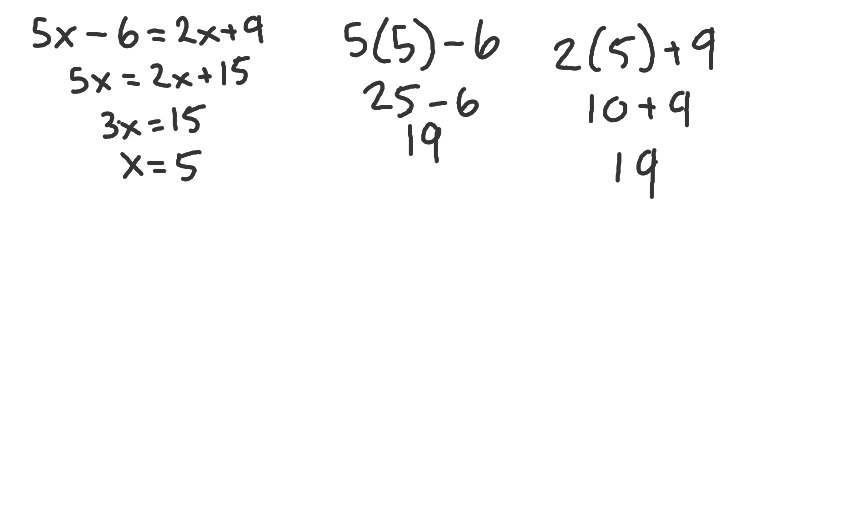 5x - 6 = 2x + 9
5x = 2x + 15
3x = 15
x = 5
5(5) - 6
25 - 6
19
2(5) + 9
10 + 9
19